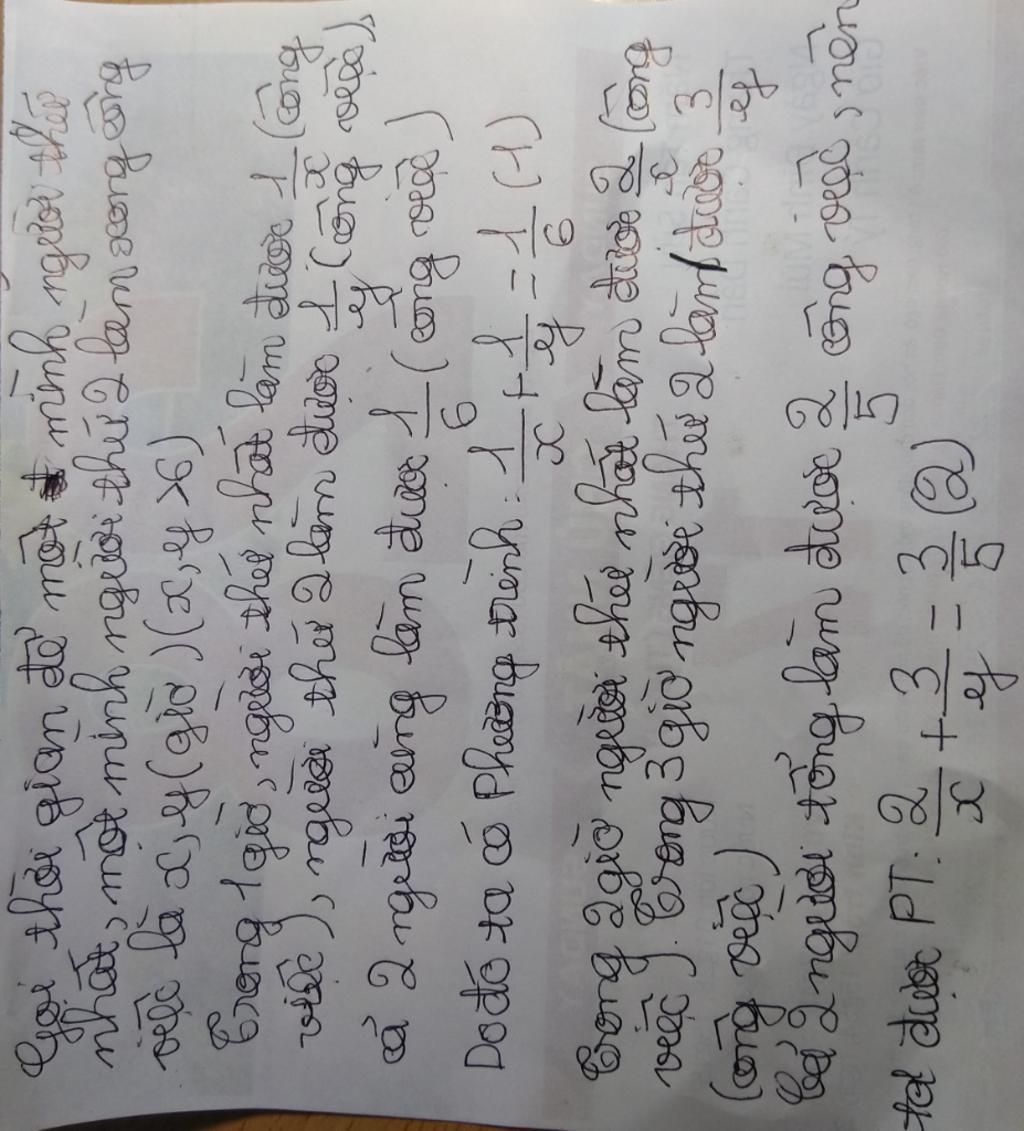 Gọi thời gian để một mình người thứ
nhất, một mình người thứ 2 làm xong công
việc là x, y (giờ) (x, y > 6)
Trong 1 giờ, người thứ nhất làm được 1/x (công
việc), người thứ 2 làm được 1/y (công việc),
cả 2 người cùng làm được 1/6 (công việc)
Do đó ta có Phương trình: 1/x + 1/y = 1/6 (1)
Trong 2 giờ người thứ nhất làm được 2/x (công
việc). Trong 3 giờ người thứ 2 làm được 3/y
(công việc)
Cả 2 người tổng làm được 2/5 công việc, nên
ta được PT: 2/x + 3/y = 3/5 (2)